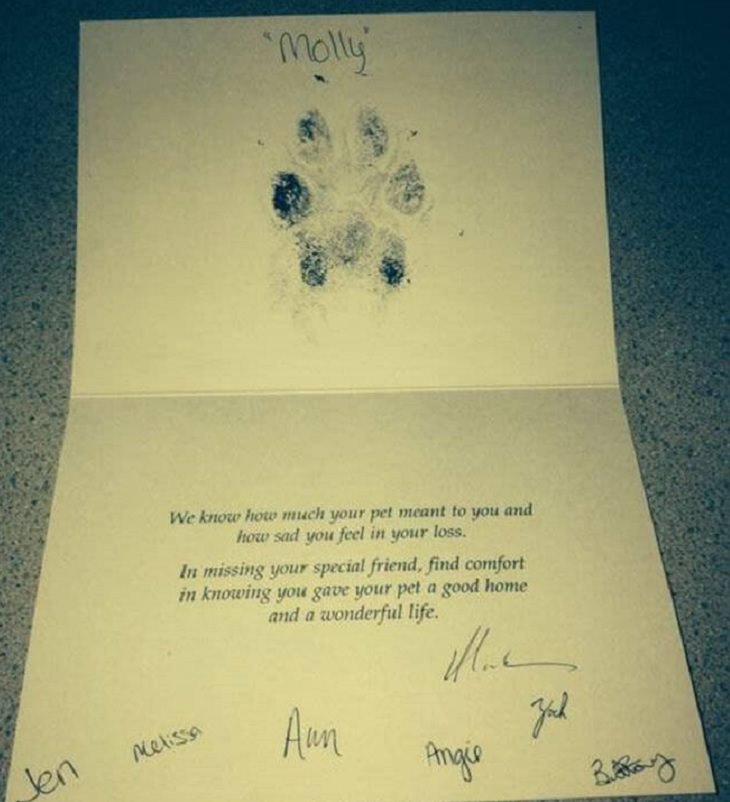 "Molly"
We know how much your pet meant to you and
how sad you feel in your loss.
In missing your special friend, find comfort
in knowing you gave your pet a good home
and a wonderful life.
Zach
Jen Melissa Ann Angie